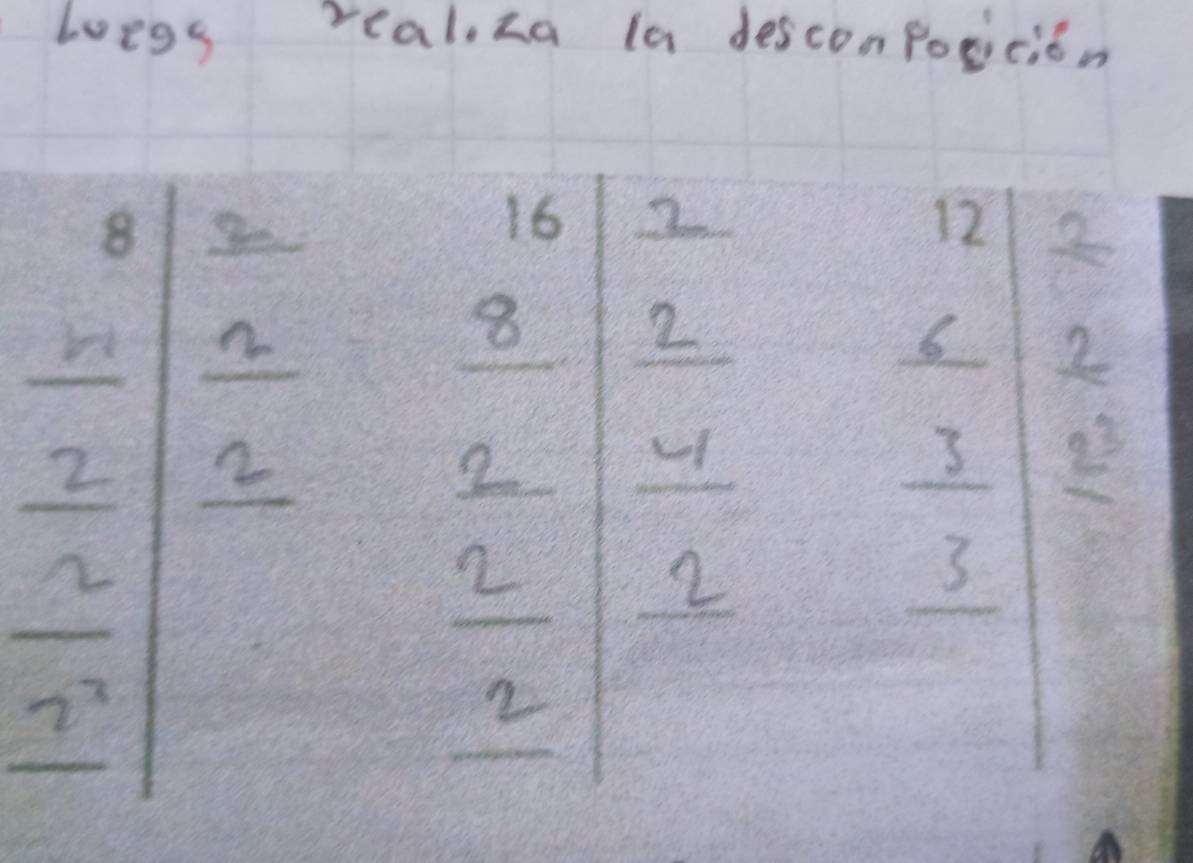 Luego realiza la desconposición
8 2 16 2 12 2
4 2 8 2 6 2
2 2 2 4 3
2 2 2 3
2³ 2